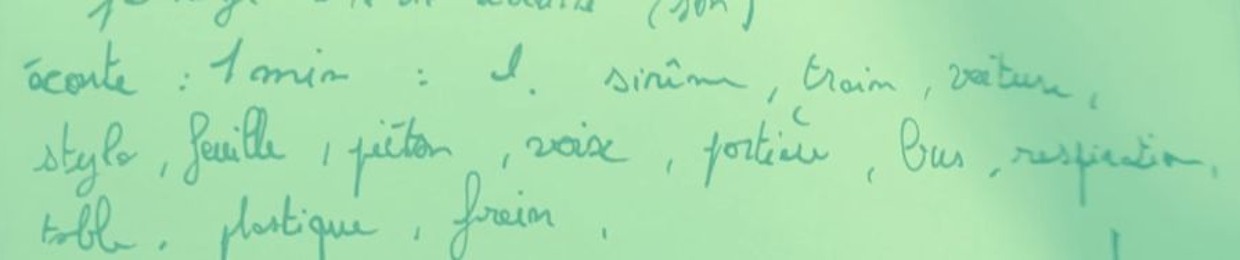 (son)
écoute : 1 min : 1. sirêne, train, voiture,
stylo, feuille, piéton, voix, portière, bus, respiration,
table, plastique, frein,